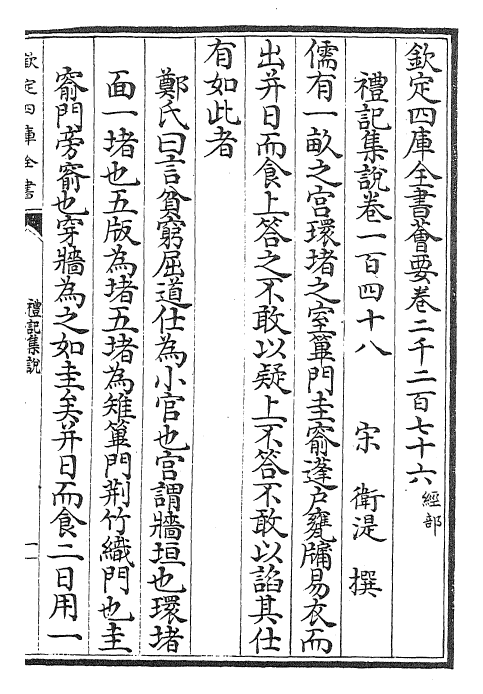 欽定四庫全書薈要卷二千二百七十六經部
禮記集說卷一百四十八　宋　衛湜　撰
儒有一畝之宫環堵之室篳門圭窬蓬户甕牖易衣而
出并日而食上答之不敢以疑上不答不敢以諂其仕
有如此者
鄭氏曰言貧窮屈道仕為小官也宫謂牆垣也環堵
面一堵也五版為堵五堵為雉篳門荆竹織門也圭
窬門旁窬也穿牆為之如圭矣并日而食二日用一
欽定四庫全書
禮記集說
一